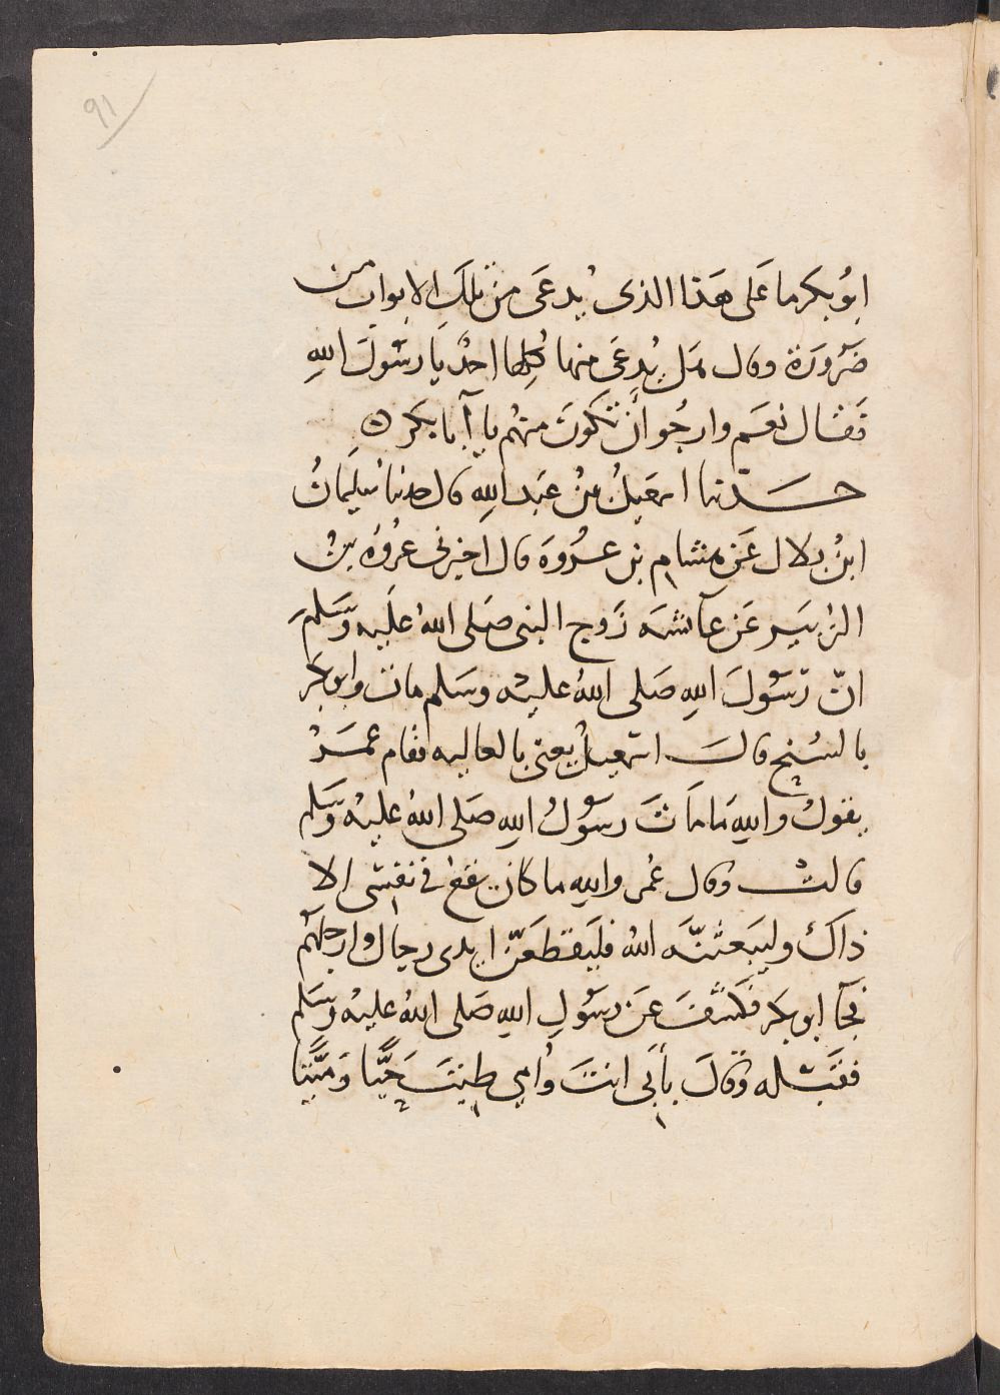 91
ابُو بكر ما عَلى هَذا الذى يُدعَى مِن تلكَ الابواب من
ضَرُورَة وقال هَل يُدعَى منها كُلِها احدٌ يَا رسُولَ اللهِ
فَقال نعَم وارجُو أَن تكونَ منهُم يا أَبا بكر
حَدثنا اسمعيلُ بنُ عَبد اللهِ قال حدثنا سُليمانُ
ابنُ بلال عَن هشام بن عُروَة قال اخبرنى عُروَة بنُ
الزبَير عَن عآئشَه زَوج النبى صَلى اللهُ عَليه وَسَلمَ
انّ رَسُولَ اللهِ صَلى اللهُ عليه وسَلم مات وابو بكر
بالسُنح قالَ اسمعيلُ يعنى بالعاليه فقام عمَرُ
يقولُ واللهِ مَا مَاتَ رسُولُ اللهِ صَلى اللهُ عليهِ وَسَلم
قالت وقال عُمر واللهِ ما كان يقع فى نفسى الا
ذاكَ وليَبعثنّه اللهُ فليَقطعَنّ ايدى رجال وارجلهُم
فجآ ابو بكر فكشَفَ عَن رسُولِ اللهِ صَلى اللهُ عليهِ وسَلم
فقبّله وَقالَ بأَبى انتَ وأُمي طبتَ حَيًّا وَمَيّتًا